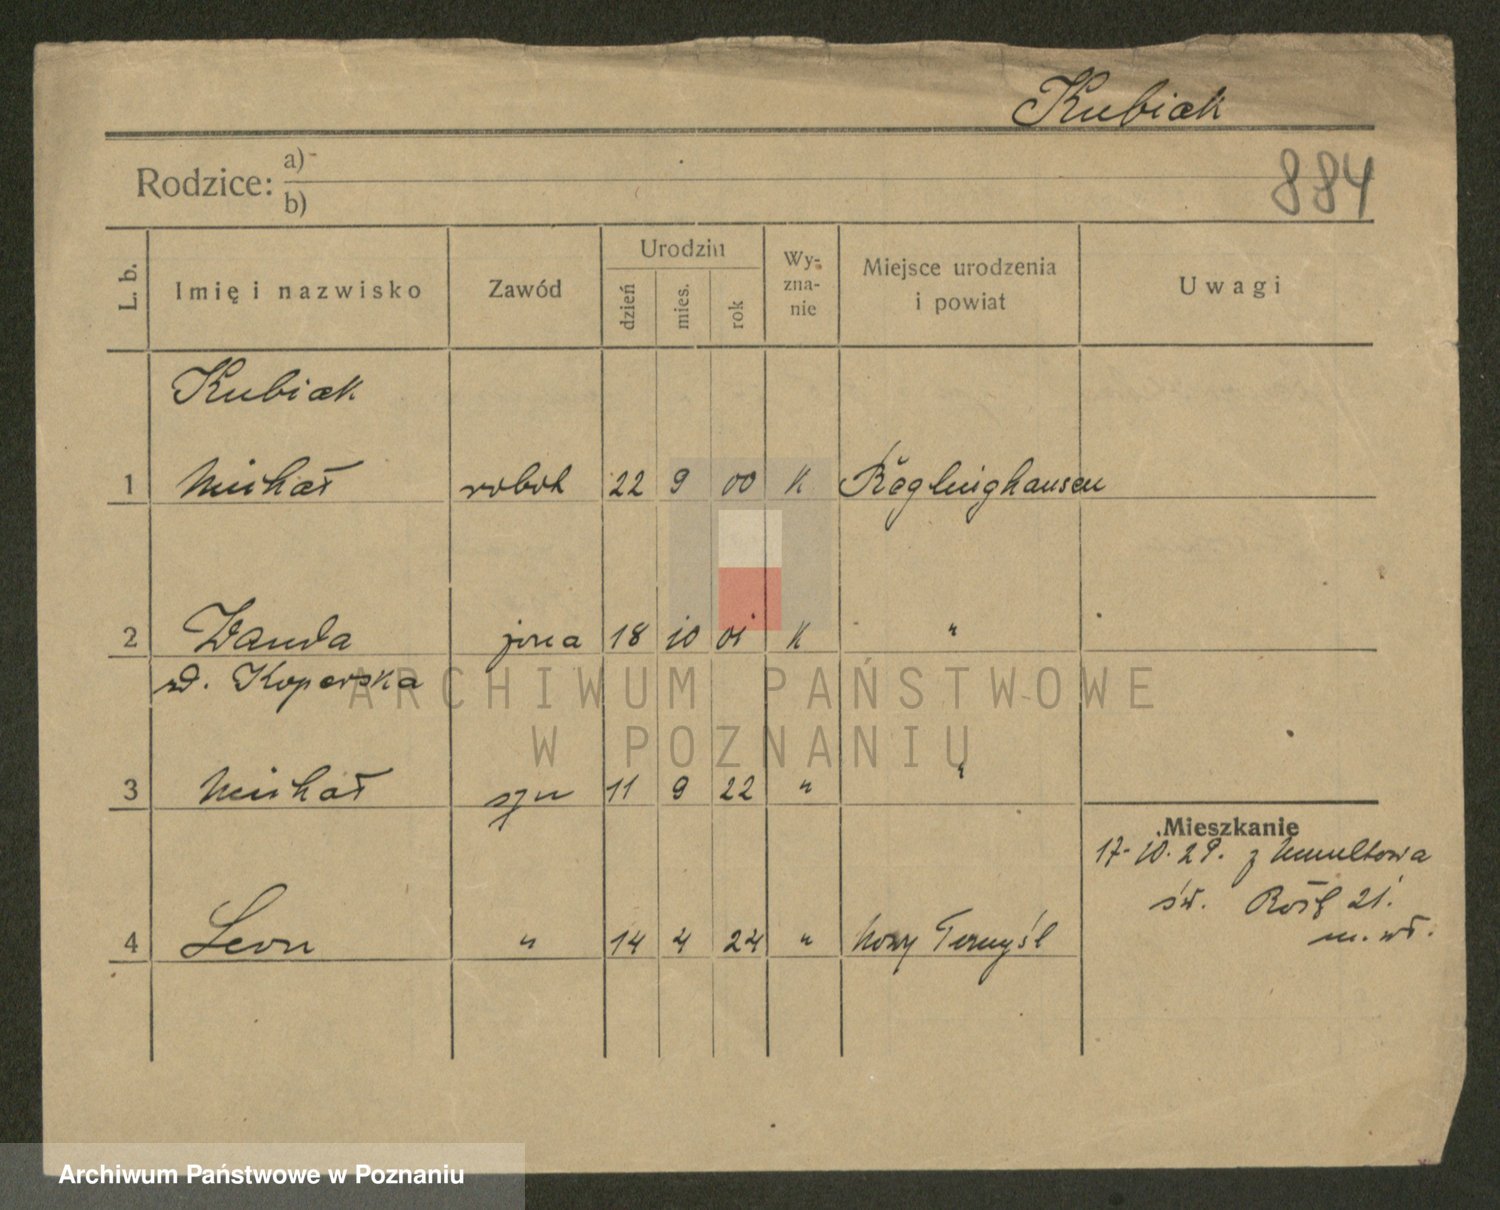 Kubiak
884
Rodzice: a) -
b)
L. b. Imię i nazwisko Zawód Urodzin dzień mies. rok Wy-zna-nie Miejsce urodzenia i powiat Uwagi
Kubiak
1 Michał robot 22 9 00 K Röglinghausen
2 Wanda żona 18 10 01 K "
zd. Koperska
3 Michał syn 11 9 22 " "
Mieszkanie
17.10.29. z Umultowa
św. Rocha 21.
m. wł.
4 Leon " 14 4 24 " Nowy Tomyśl
ARCHIWUM PAŃSTWOWE
W POZNANIU
Archiwum Państwowe w Poznaniu